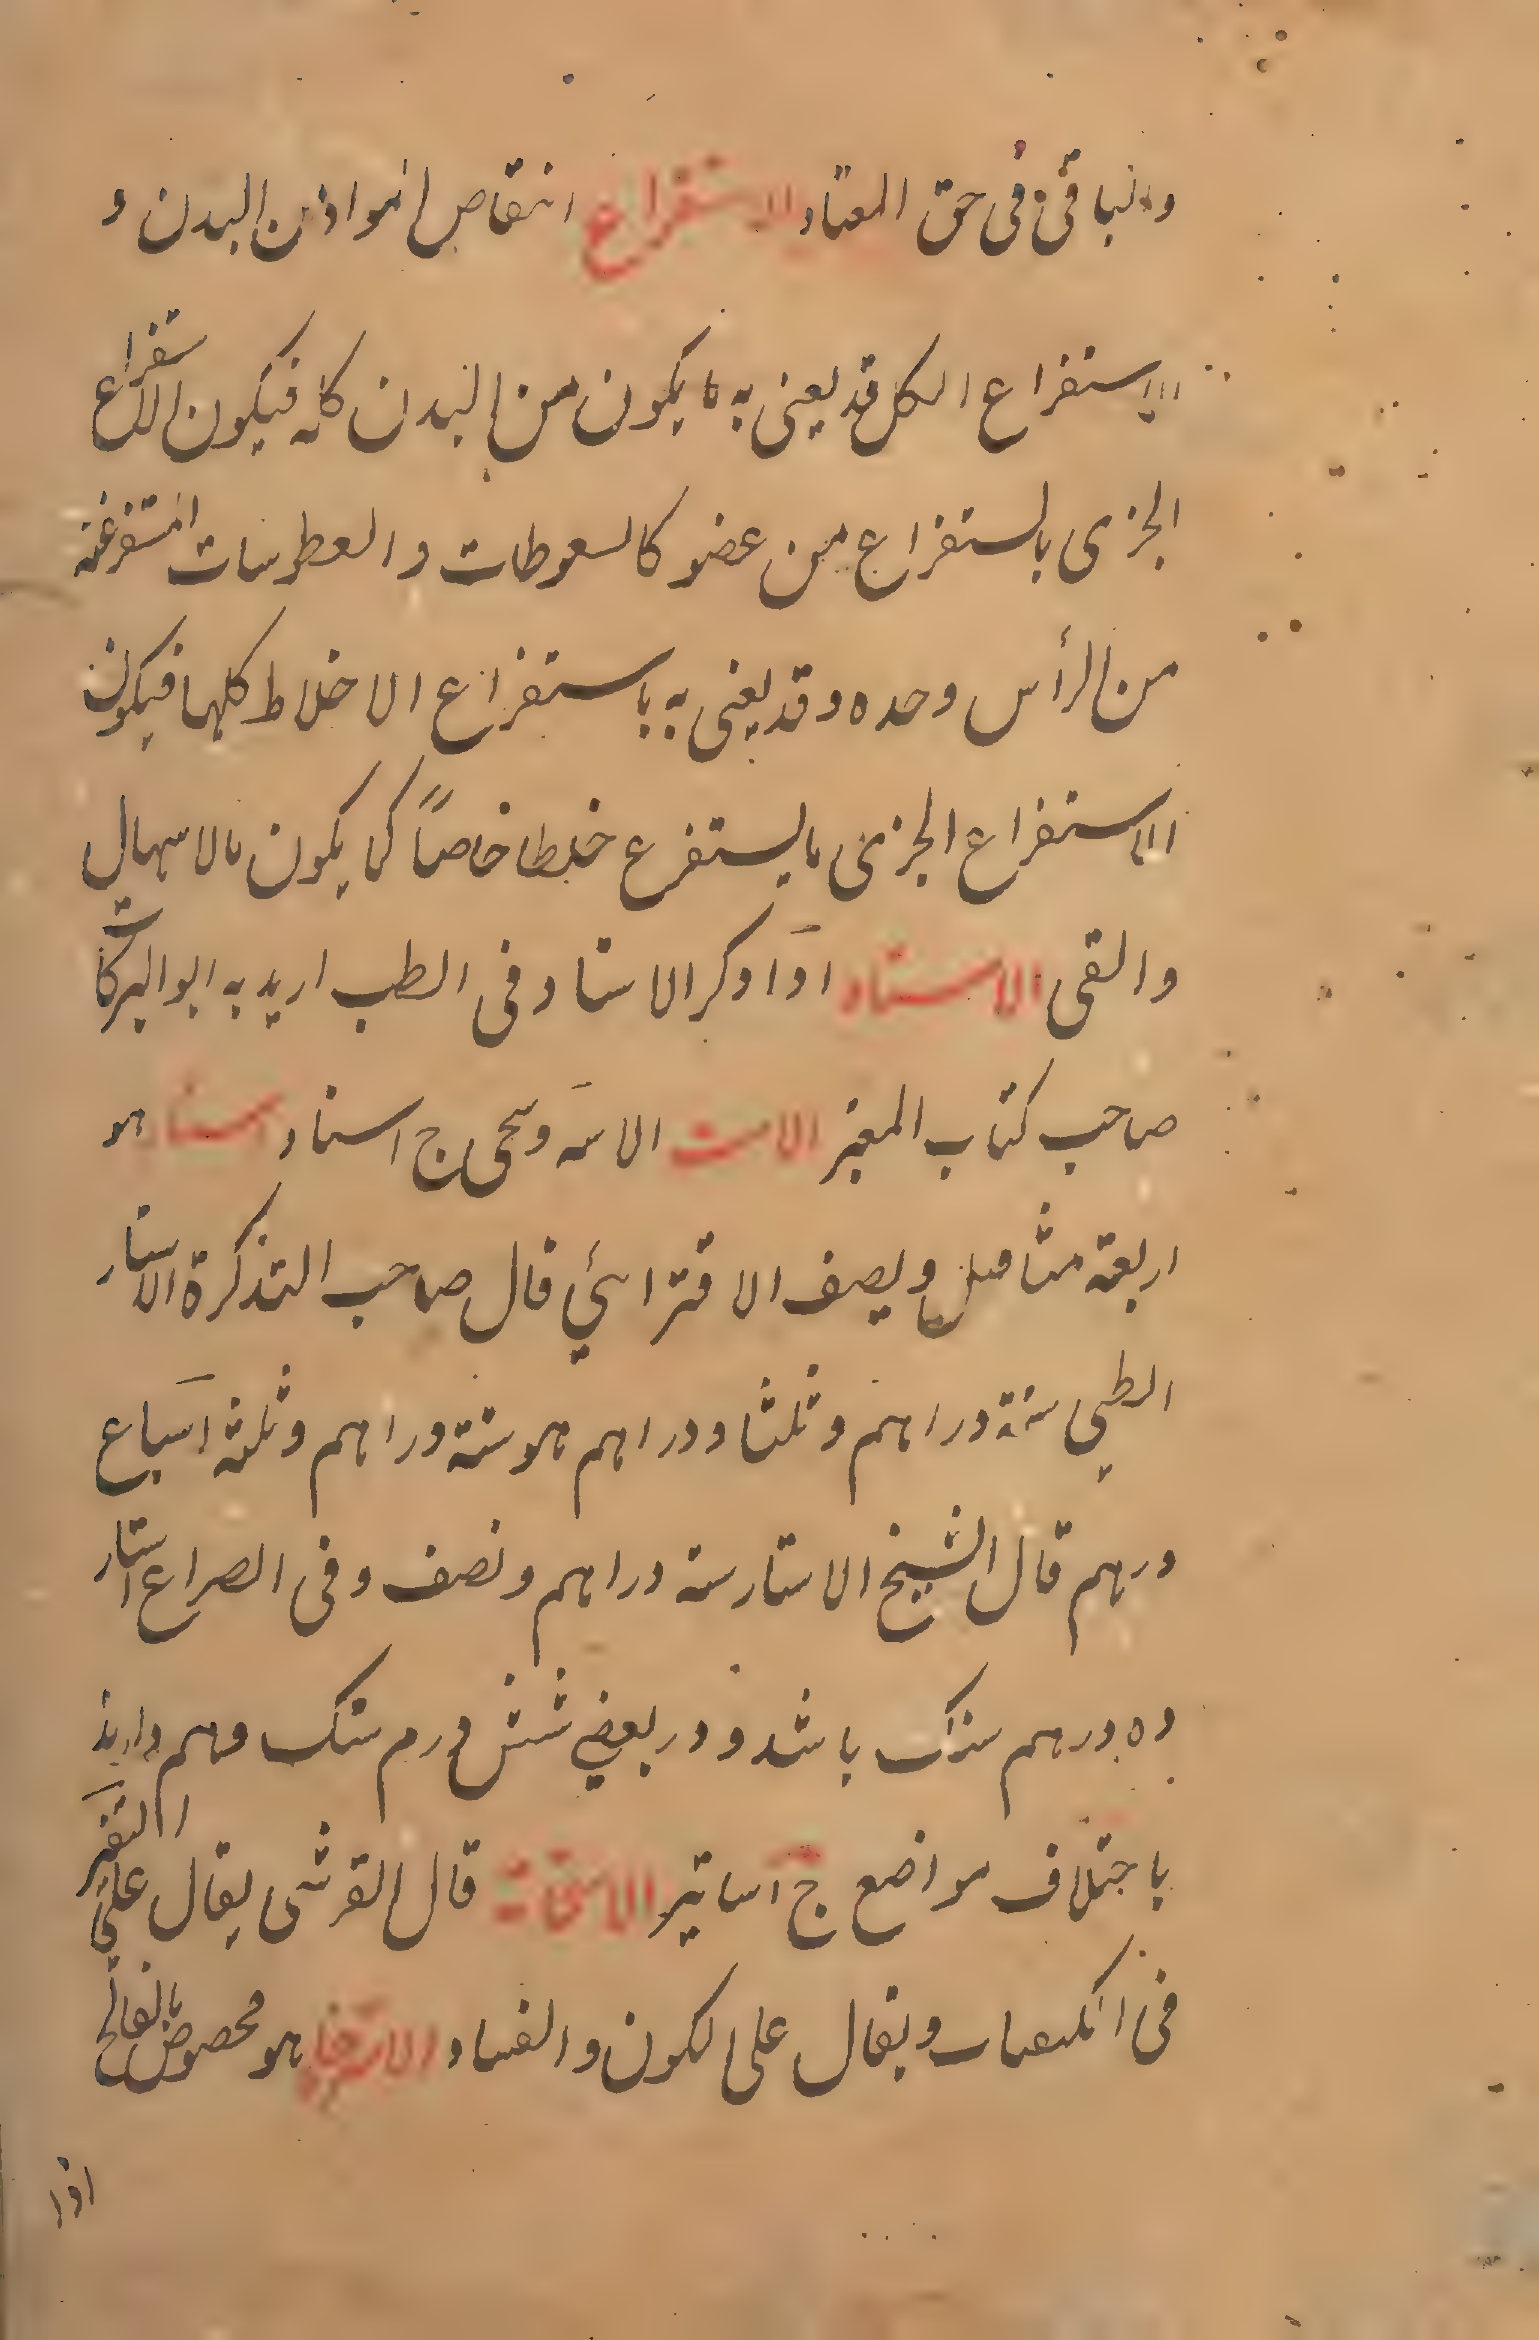 والباقی فی حق المعتاد الاستفراغ انتقاص المواد من البدن و
الاستفراغ الکل قد یعنی به ما یکون من البدن کله فیکون الاستفراغ
الجزی ما یستفراغ من عضو کالسعوطات و العطوسات المستفرغة
من الرأس وحده و قد یعنی به ما یستفراغ الاخلاط کلها فیکون
الاستفراغ الجزی ما یستفرغ خلطا خاصاً کما یکون بالاسهال
و القی الاستاد اذا ذکر الاستاد فی الطب ارید به ابو البرکات
صاحب کتاب المعتبر الاست الاسه ج استاه استار هو
اربعة مثاقیل و نصف الاقسرائی قال صاحب التذکرة الاستار
الطبی ستة دراهم و ثلثا و دراهم هو ستة دراهم و ثلثة اسباع
درهم قال الشیخ الاستار ستة دراهم و نصف و فی الصراع استار
ده درهم سنگ باشد و در بعضی شش درم سنگ و هم دارند
باختلاف مواضع ج اساتیر الاستحالة قال القرشی یقال علی التغیر
فی الکیفیات و یقال علی الکون و الفساد الاسترخاء هو مخصوص بالفالج
اذا